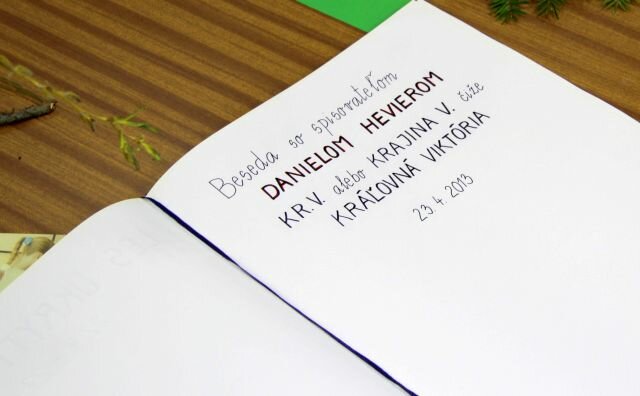 Beseda so spisovateľom
DANIELOM HEVIEROM
KR.V. alebo KRAJINA V. čiže
KRÁĽOVNÁ VIKTÓRIA
23.4.2013